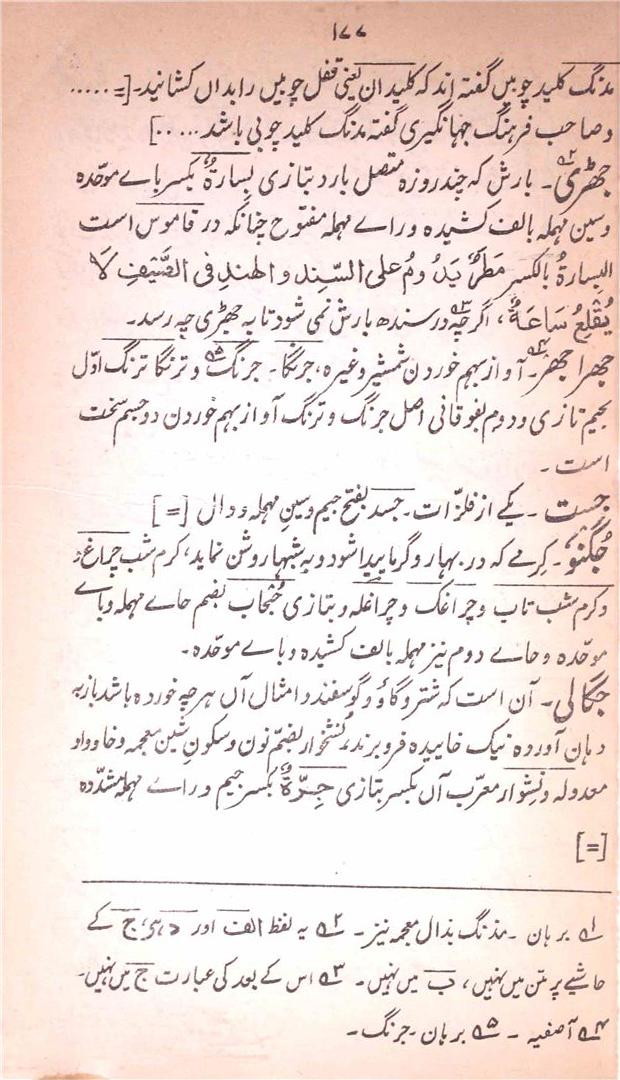 ۱۷۷
مدنگ کلید چوبیں گفتہ اند کہ کلیدان یعنی قفل چوبیں را بداں کشانید۔ [= .....
و صاحب فرہنگ جہانگیری گفتہ مدنگ کلید چوبی باشد .....]
جھڑی۲؎۔ بارش کہ چند روزہ متصل بارد بتازی بسارۃٌ بکسر باے موحّدہ
وسین مہملہ بالف کشیدہ و راے مہملہ مفتوح چنانکہ در قاموس است
البِسارۃُ بالکسرِ مَطَرٌ یَدُومُ علی السّندِ والہندِ فی الصَّیفِ لَا
یُقْلِعُ سَاعَۃً ۳؎، اگرچہ در سندھ بارش نمی شود تا بہ جھڑی چہ رسد۔
جھرا جھر۴؎۔ آواز بہم خوردن شمشیر وغیرہ، جرنگا۔ جرنگ۵؎ و ترنگا ترنگ اوّل
بجیم تازی و دوم بفوقانی اصل جرنگ و ترنگ آواز بہم خوردن دو جسم سخت
است۔
جست۔ یکے از فلزّات۔ جسد بفتح جیم و سینِ مہملہ و دال [=]
جُگنو۔ کِرمے کہ در بہار و گرما پیدا شود و بہ شبہا روشن نماید، کرم شب چراغ و
و کرم شب تاب و چراغک و چراغلہ و بتازی حُبحاب بضم حاے مہملہ و باے
موحّدہ و حاے دوم نیز مہملہ بالف کشیدہ و باے موحدہ۔
جگالی۔ آن است کہ شتر و گاؤ و گوسفند و امثال آں ہر چہ خوردہ باشد باز بہ
دہان آوردہ نیک خاییدہ فرو برند، نُشخوار بضمّ نون و سکونِ شین معجمہ و خا و واو
معدولہ و نِشوار معرّب آں بکسر بتازی جِرّۃٌ بکسر جیم و راے مہملہ مشدّدہ
[=]
۱؎ برہان۔ مذنگ بذال معجمہ نیز۔ ۲؎ یہ لفظ الف اور د، ہی، ج کے
حاشیے پر متن میں نہیں، ب میں نہیں۔ ۳؎ اس کے بعد کی عبارت ج میں نہیں۔
۴؎ آصفیہ۔ ۵؎ برہان۔ جرنگ۔